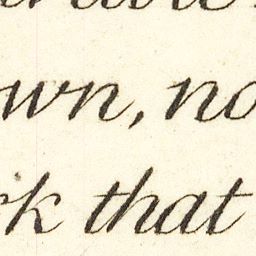 wn, no
rk that